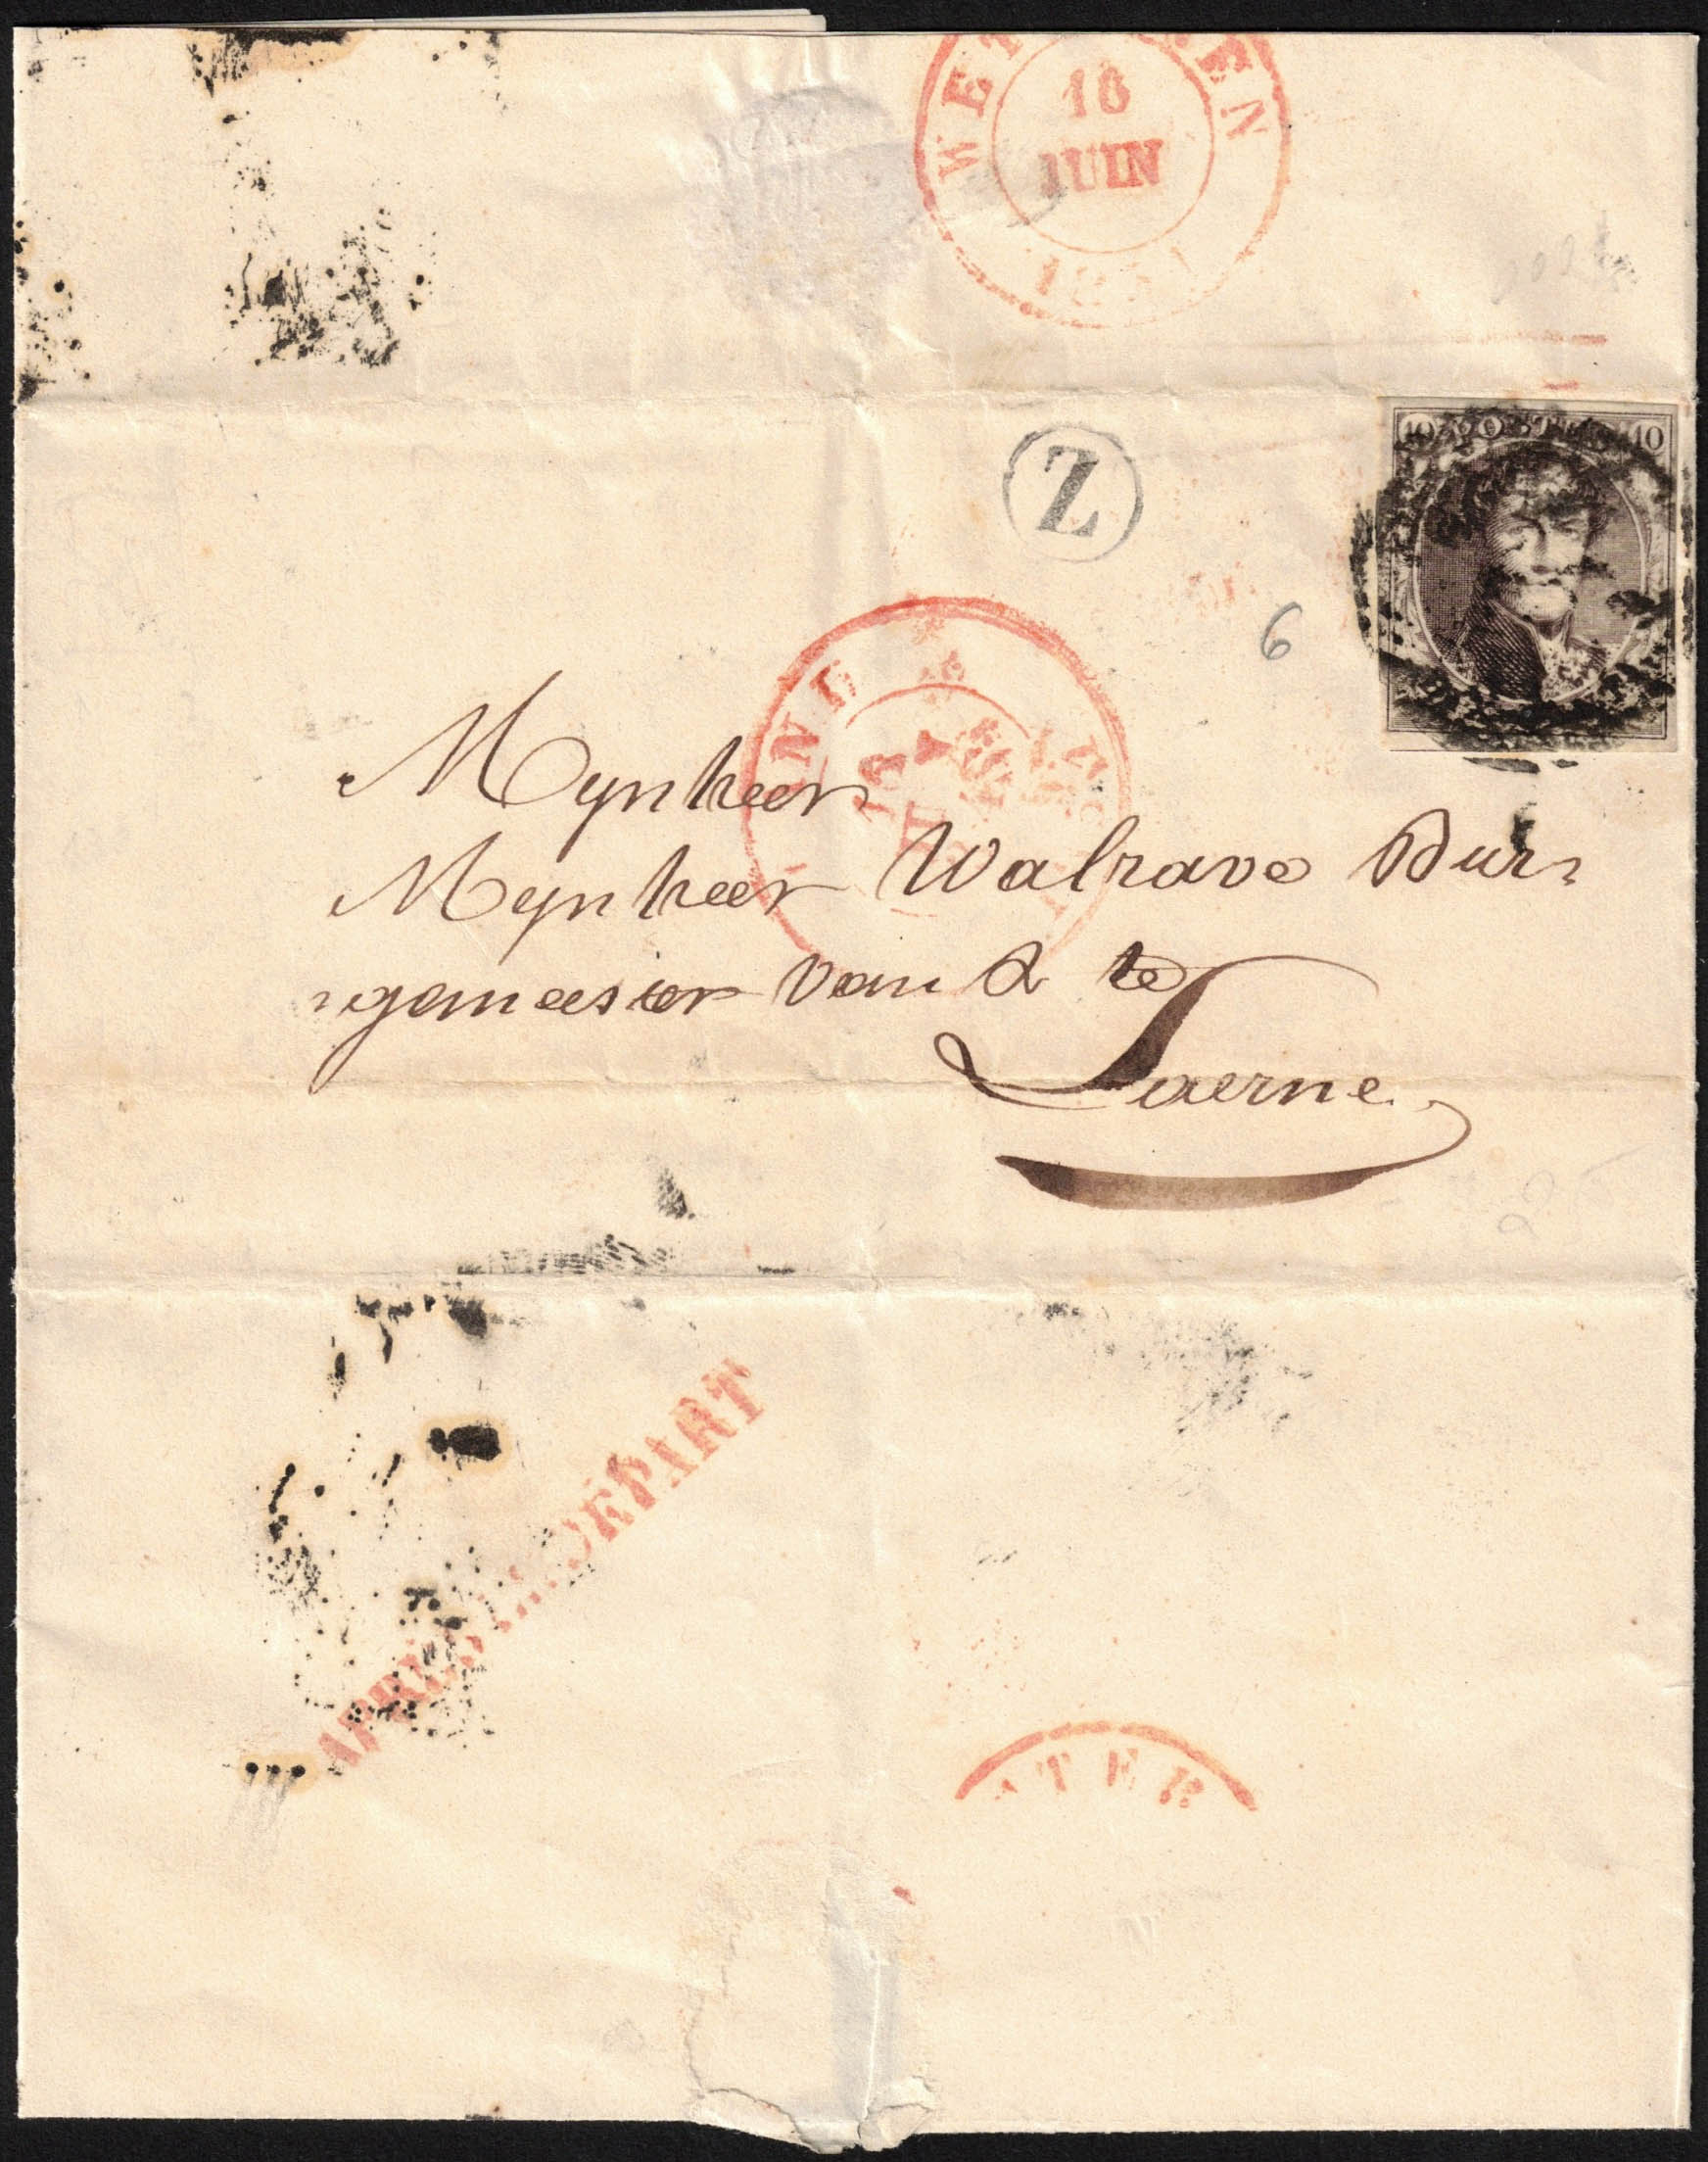 WET EN
16
JUIN
185
10 10
Z
6
Mynheer
Mynheer Walrave Bur-
-gemeester van & te
Laerne
APRÈS LE DÉPART
TER